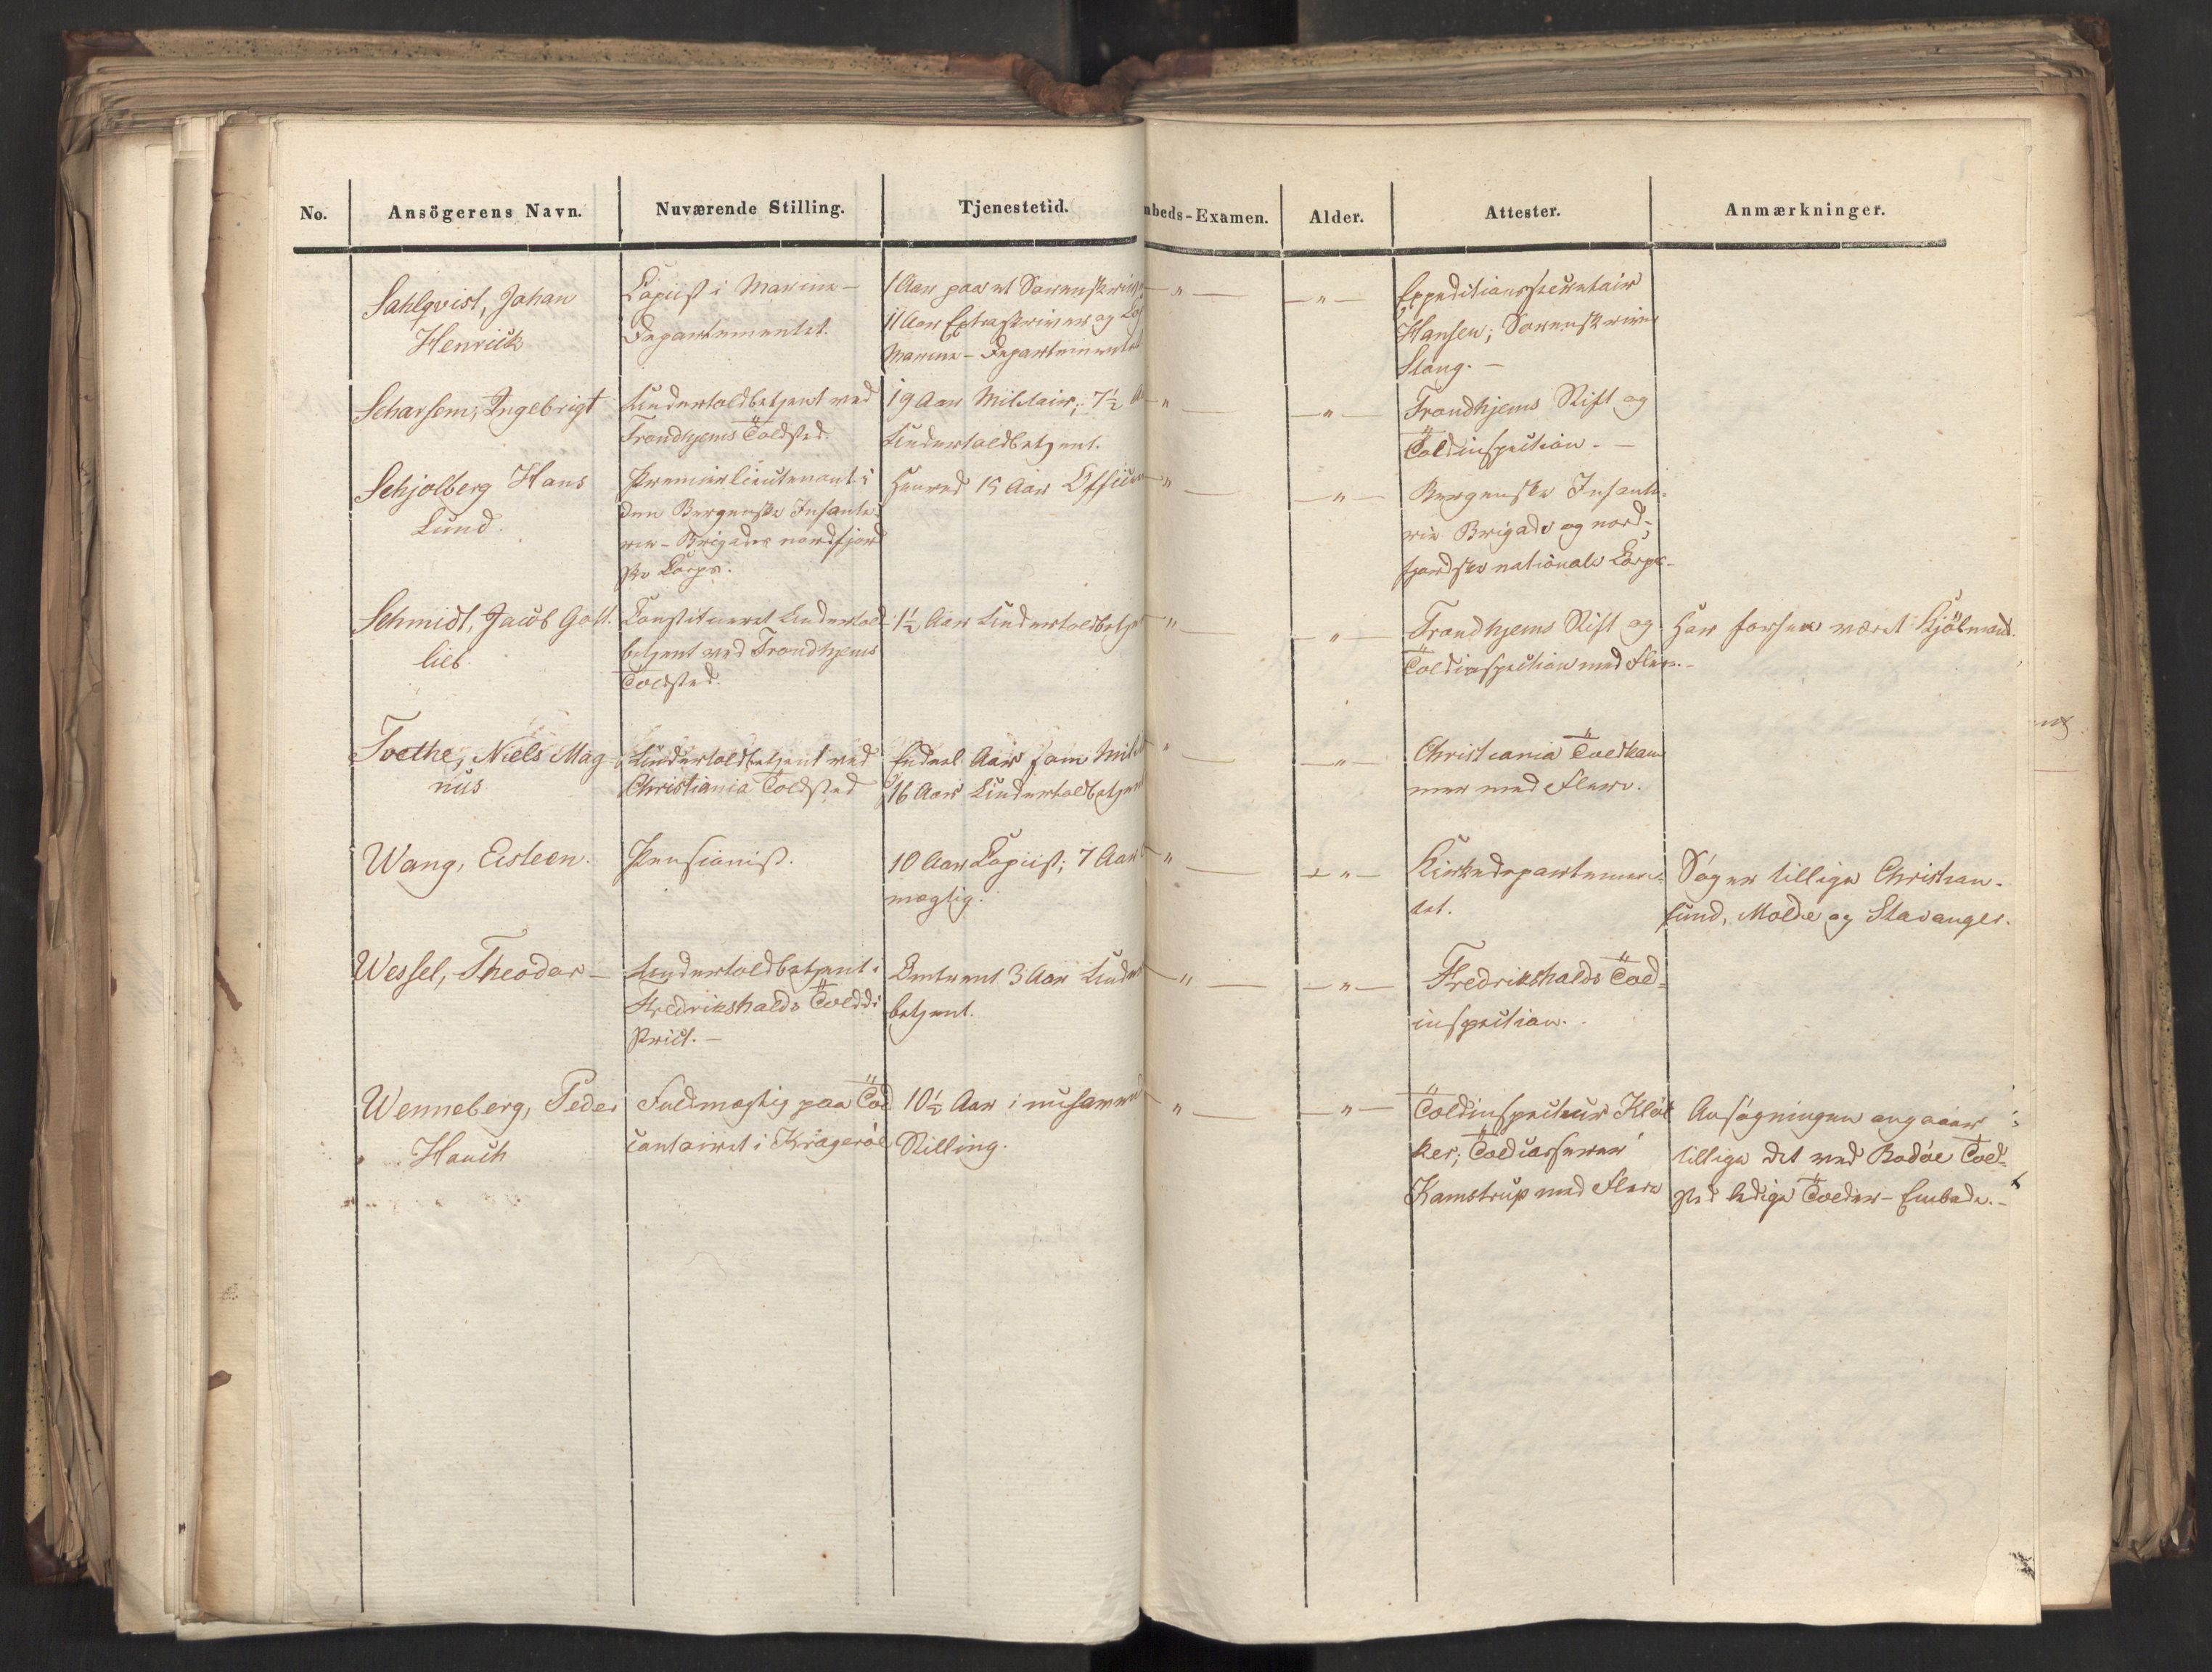 No. Ansögerens Navn. Nuværende Stilling. Tjenestetid. mbeds-Examen. Alder. Attester. Anmærkninger.
Sahlqvist, Johan
Henrick
Copiist i Marine-
Departementet.
1 Aar paa et Sorenskriver
11 Aar Extraskriver og Cop
Marine-Departementet
— " —
— " —
Expeditionssecretair
Hansen; Sorenskriver
Stang. —
Scharsem, Ingebrigt
Undertoldbetjent ved
Trondhjems Toldsted.
19 Aar Militair; 7½ A
Undertoldbetjent.
" —
— " —
Trondhjems Stift og
Toldinspection. —
Schjolberg Hans
Lund.
Premierlieutenant i
den Bergenske Infante-
rie-Brigades nordfjord
ske Corps.
Henved 15 Aar Officier
" —
— " —
Bergenske Infante-
rie Brigade og nord-
fjordske nationale Corps-
Schmidt, Jacob Gott-
lieb.
Constitueret Undertold
betjent ved Trondhjems
Toldsted.
1½ Aar Undertoldbetje
" —
— " —
Trondhjems Stift og
Toldinspection med Flere.-
Har forhen været Kjöbmand.
Tvethe, Niels Mag
nus
Undertoldbetjent ved
Christiania Toldsted
Endeel Aar som Milit
16 Aar Undertoldbetjent
" —
— " —
Christiania Toldkam
mer med Flere.
Wang, Eisteen.
Pensionist.
10 Aar Copiist; 7 Aar
mægtig.
" —
— " —
Kirkedepartemen-
tet.
Söger tillige Christian-
sund, Molde og Stavanger.
Wessel, Theodor —
Undertoldbetjent i
Fredrikshalds Tolddi
strict. —
Omtrent 3 Aar Under
betjent.
— " —
— " —
Fredrikshalds Told-
inspection.
Wenneberg, Peder
Hauch
Fuldmægtig paa Told
contoiret i Krageröe
10½ Aar i nuhavend
Stilling.
" —
— " —
Toldinspecteur Klöc
ker; Toldcasserer
Kamstrup med Flere
Ansögningen angaaer
tillige det ved Bodöe Told-
sted ledige Tolder-Embede. -